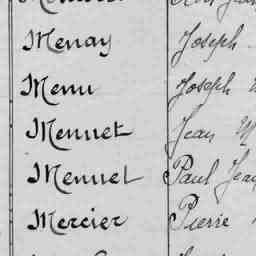 Menay Joseph
Menu Joseph
Mennet Jean M
Mennet Paul Jean
Mercier Pierre